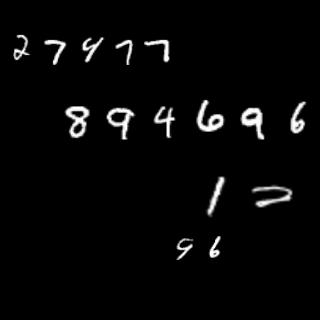 27477
894696
1=
96